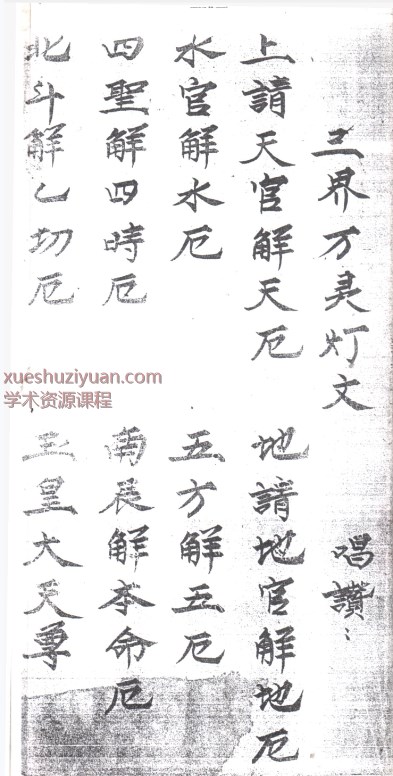 三界万灵灯文 唱讚⋮
上請天官解天厄 地請地官解地厄
水官解水厄 五方解五厄
四聖解四時厄 南辰解本命厄
北斗解乙切厄 玉皇大天尊
xueshuziyuan.com
学术资源课程